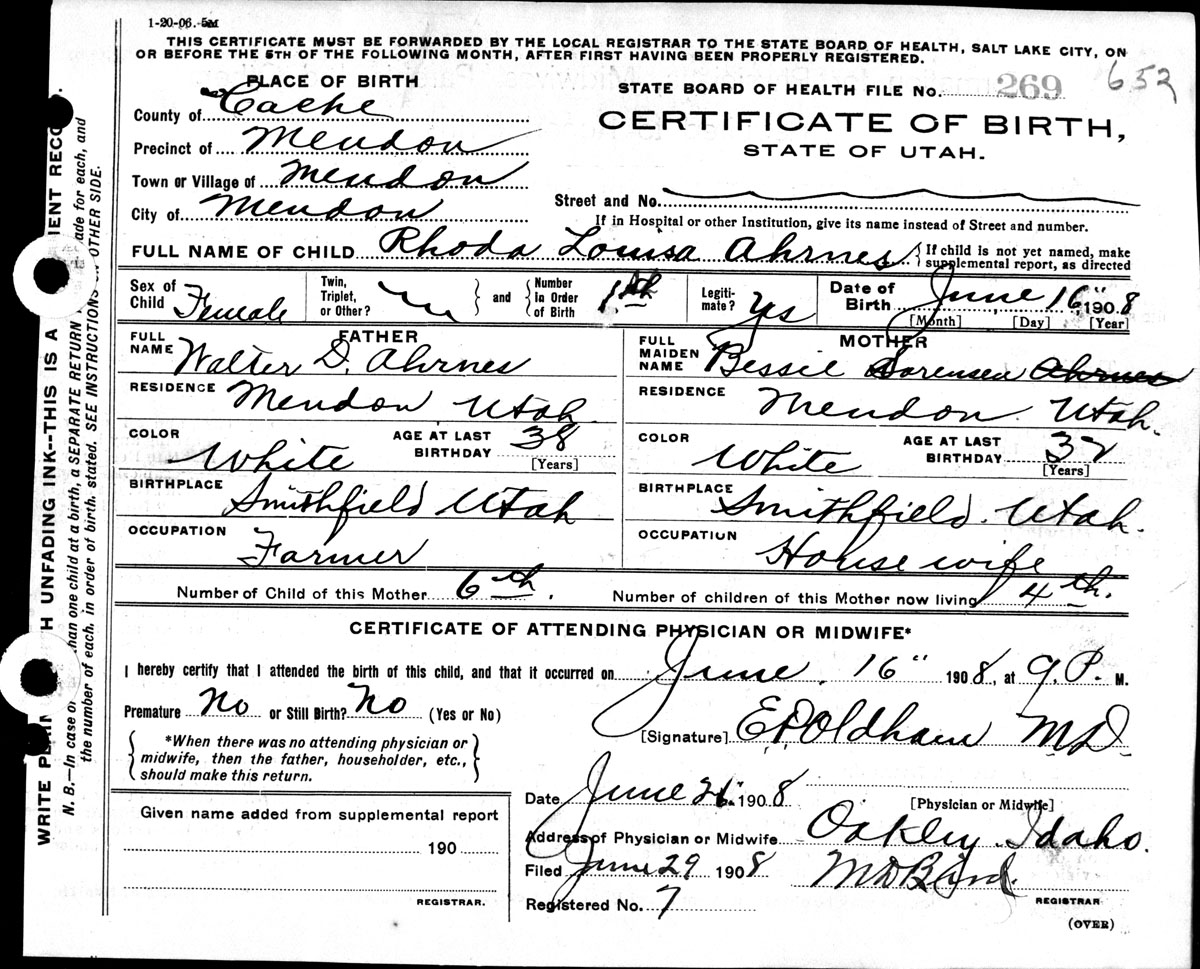 1-20-06. 5M
THIS CERTIFICATE MUST BE FORWARDED BY THE LOCAL REGISTRAR TO THE STATE BOARD OF HEALTH, SALT LAKE CITY, ON
OR BEFORE THE 5TH OF THE FOLLOWING MONTH, AFTER FIRST HAVING BEEN PROPERLY REGISTERED.
PLACE OF BIRTH
County of Cache
Precinct of Mendon
Town or Village of Mendon
City of Mendon
STATE BOARD OF HEALTH FILE No. 269 652
CERTIFICATE OF BIRTH,
STATE OF UTAH.
Street and No.
If in Hospital or other Institution, give its name instead of Street and number.
FULL NAME OF CHILD Rhoda Louisa Ahrnes { If child is not yet named, make supplemental report, as directed
Sex of Child Female Twin, Triplet, or Other? } and { Number In Order of Birth 1.th Legiti-mate? Yes Date of Birth June 16" 1908
[Month] [Day] [Year]
FATHER
FULL NAME Walter D. Ahrnes
RESIDENCE Mendon Utah.
COLOR White AGE AT LAST BIRTHDAY 38 [Years]
BIRTHPLACE Smithfield Utah
OCCUPATION Farmer
MOTHER
FULL MAIDEN NAME Bessie Sorensen Ahrnes
RESIDENCE Mendon Utah.
COLOR White AGE AT LAST BIRTHDAY 32 [Years]
BIRTHPLACE Smithfield. Utah.
OCCUPATION House wife
Number of Child of this Mother 6th. Number of children of this Mother now living 4th.
CERTIFICATE OF ATTENDING PHYSICIAN OR MIDWIFE*
I hereby certify that I attended the birth of this child, and that it occurred on June. 16" 1908, at 9.P. M.
Premature No or Still Birth? No (Yes or No)
{ *When there was no attending physician or midwife, then the father, householder, etc., should make this return. }
[Signature] E.P. Oldham M.D.
[Physician or Midwife]
Date June 26. 1908
Address of Physician or Midwife Oakley Idaho.
Filed June 29 1908 M D Bird.
REGISTRAR
Registered No. 7
(OVER)
Given name added from supplemental report
190
REGISTRAR.
WRITE UNFADING INK--THIS IS A
N. B.—In case of than one child at a birth, a SEPARATE RETURN made for each, and
the number of each, in order of birth, stated. SEE INSTRUCTIONS OTHER SIDE.